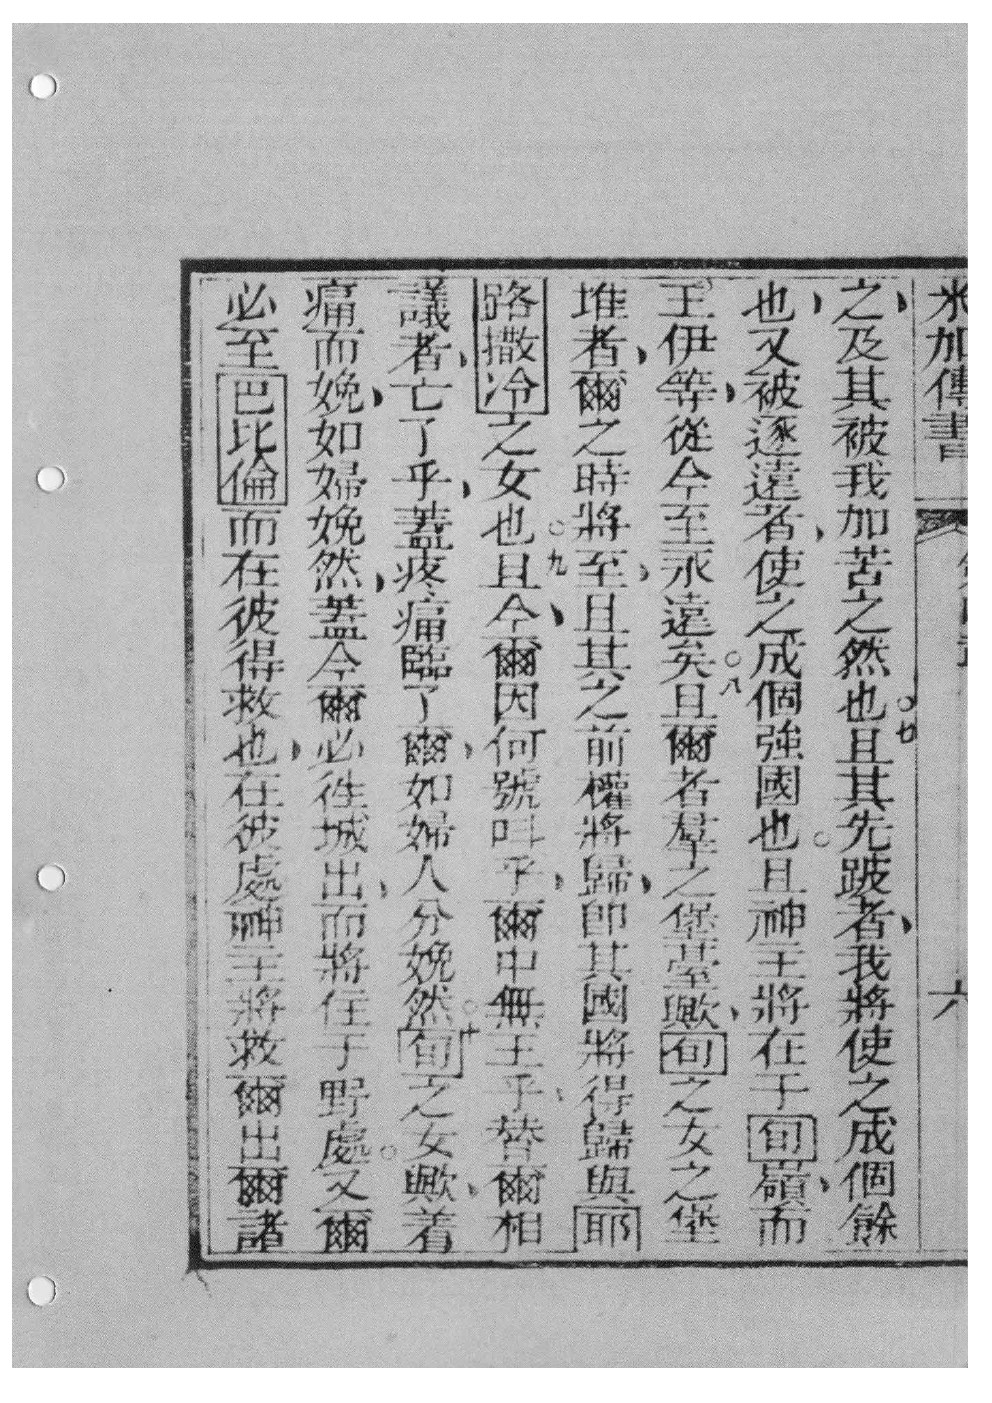 米加傳書 六
之及其被我加苦之然也。廿且其先跛者我將使之成個餘
也又被逐遠者使之成個強國也。且神主將在于旬嶺而
王伊等從今至永遠矣。八且爾者羣之堡臺歟旬之女之堡
堆者爾之時將至且其之前權將歸即其國將得歸與耶
路撒冷之女也。九且今爾因何號叫乎爾中無王乎替爾相
議者亡了乎蓋疼痛臨了爾如婦人分娩然。十旬之女歟着
痛而娩如婦娩然蓋今爾必徃城出而將住于野處。又爾
必至巴比倫而在彼得救也在彼處神主將救爾出爾諸